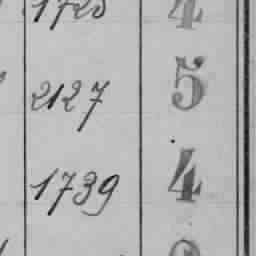 1728 4
2127 5
1739 4